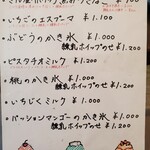 ・いちごのエスプーマ ¥1.100
・ぶどうのかき氷 ¥1.000
練乳ホイップのせ¥1.200
・ピスタチオミルク ¥1.200
・桃のかき氷 ¥1.000
練乳ホイップのせ ¥1.200
・いちじくミルク ¥1.000
・パッションマンゴーのかき氷 ¥1.000
練乳ホイップのせ ¥1.200